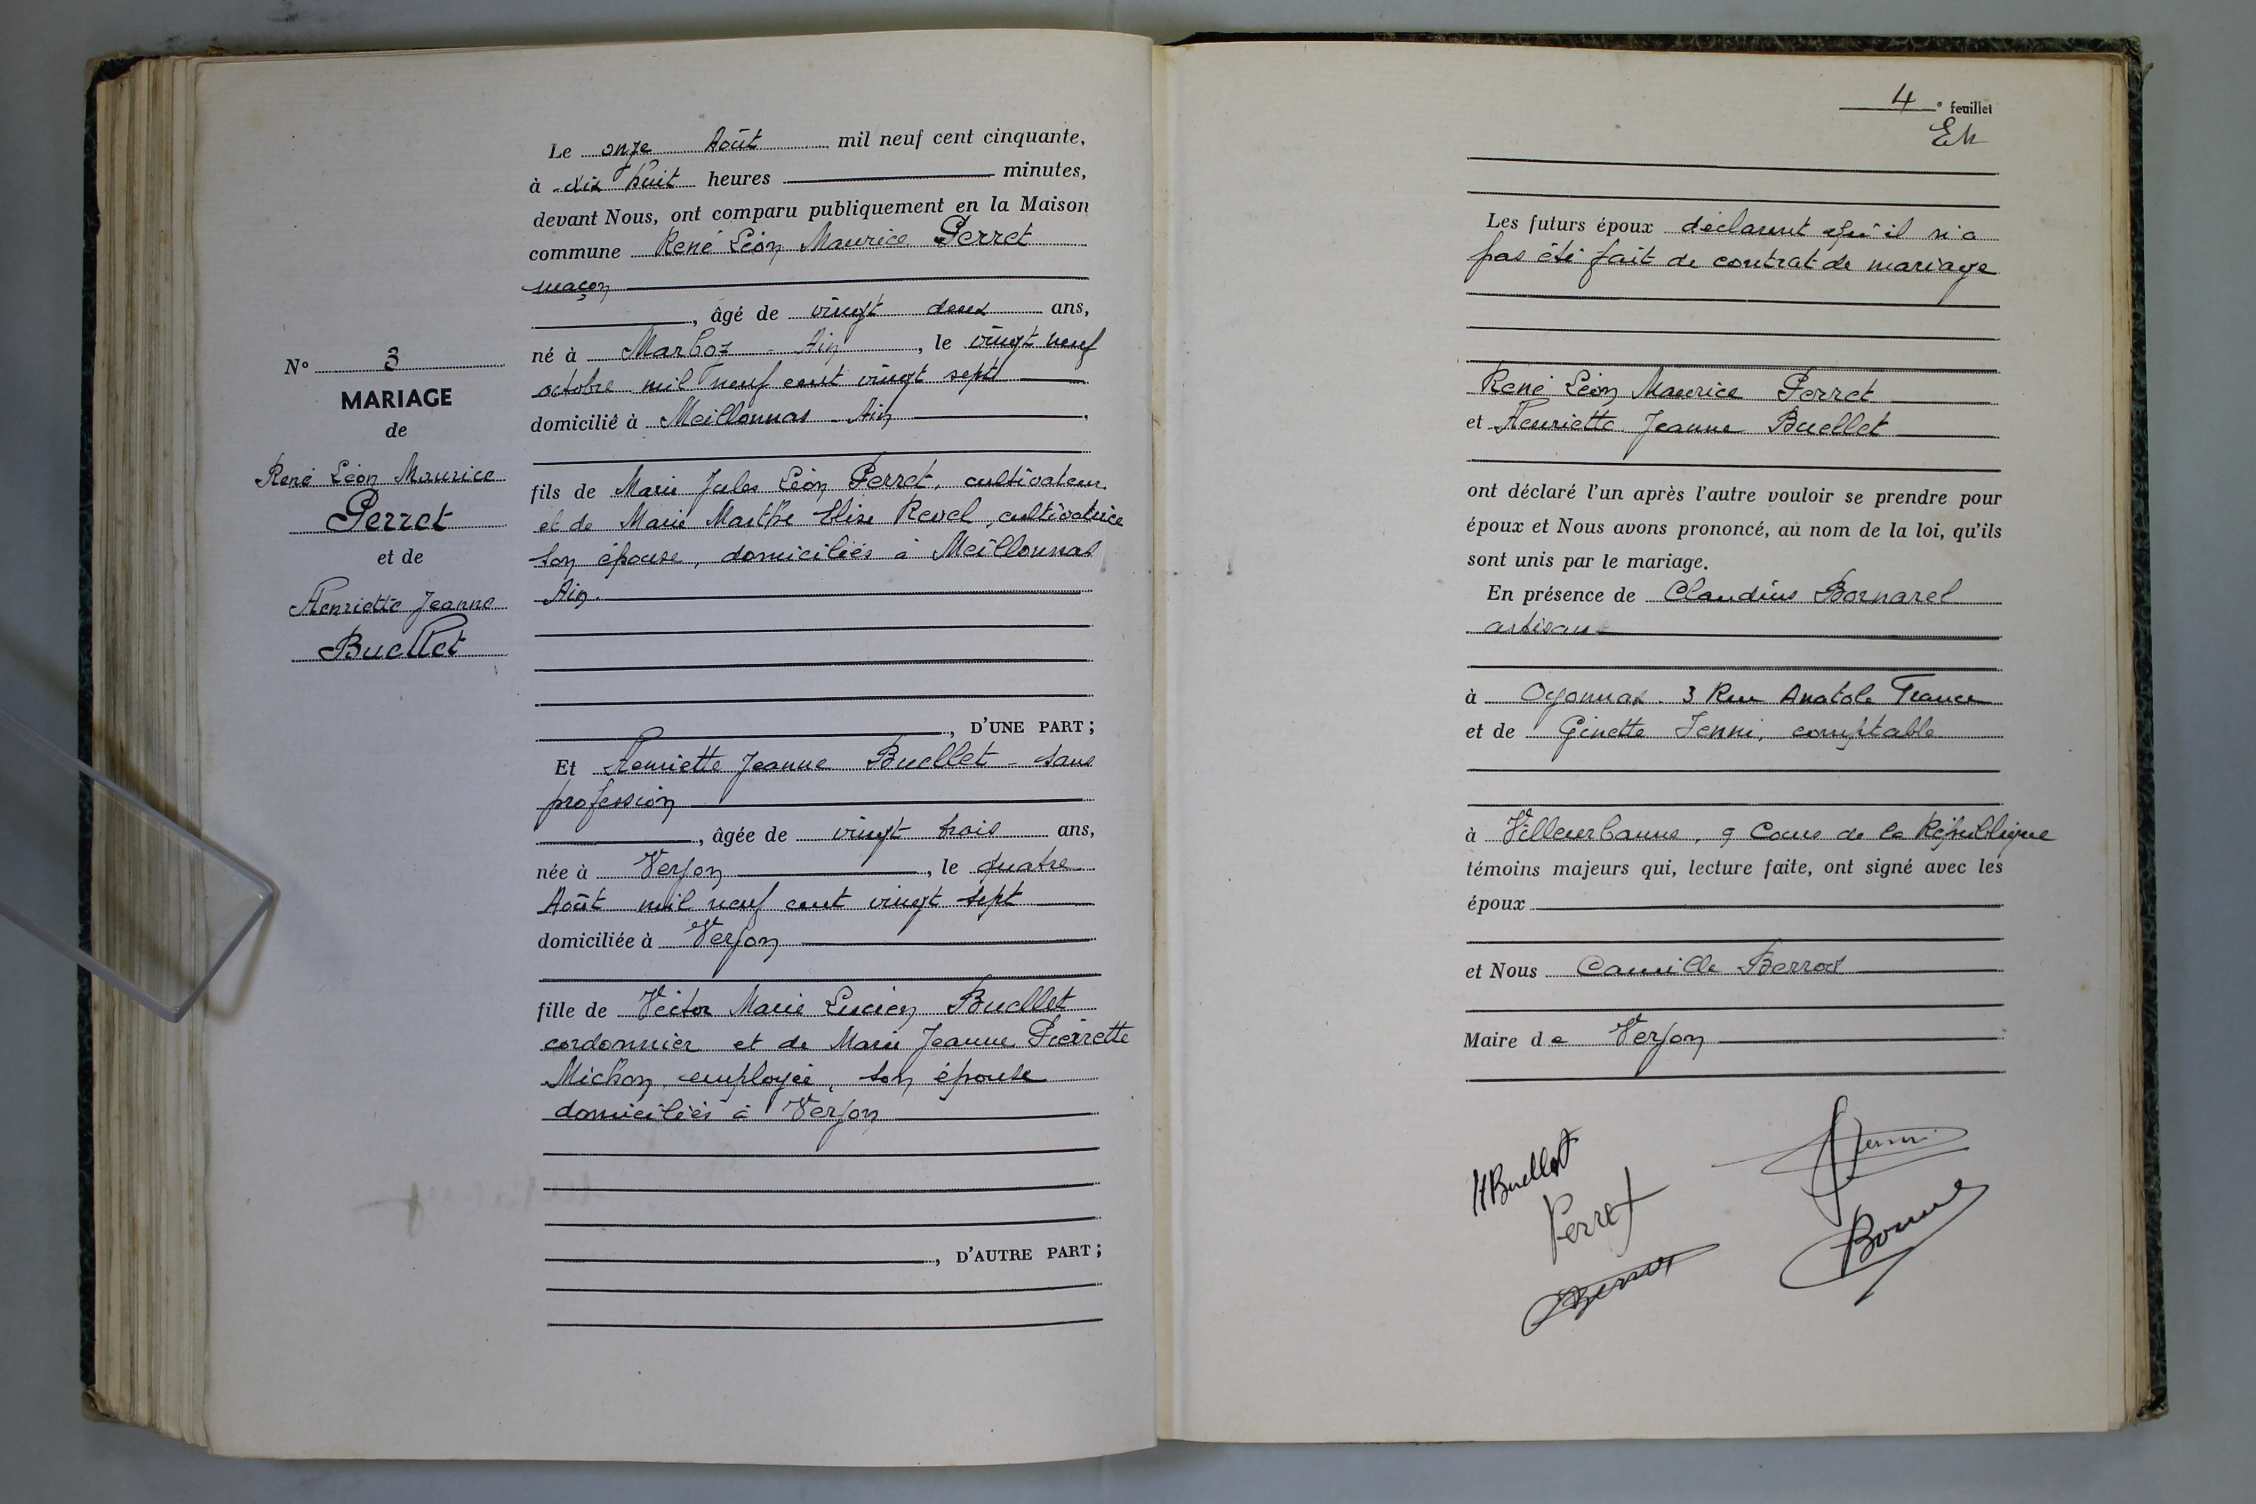 N° 3
MARIAGE
de
René Léon Maurice
Perret
et de
Henriette Jeanne
Buellet
Le onze Août mil neuf cent cinquante,
à dix huit heures minutes,
devant Nous, ont comparu publiquement en la Maison
commune René Léon Maurice Perret
maçon
, âgé de vingt deux ans,
né à Marboz - Ain , le vingt neuf
octobre mil neuf cent vingt sept
domicilié à Meillonnas - Ain
fils de Marie Jules Léon Perret, cultivateur
et de Marie Marthe Elise Revel, cultivatrice
son épouse, domiciliés à Meillonnas
Ain.
, D'UNE PART ;
Et Henriette Jeanne Buellet - sans
profession
, âgée de vingt trois ans,
née à Verjon , le quatre
Août mil neuf cent vingt sept
domiciliée à Verjon
fille de Victor Marie Lucien Buellet
cordonnier et de Marie Jeanne Pierrette
Michon, employée, son épouse
domiciliés à Verjon
, D'AUTRE PART ;
4 e feuillet
Les futurs époux déclarent qu'il n'a
pas été fait de contrat de mariage
René Léon Maurice Perret
et Henriette Jeanne Buellet
ont déclaré l'un après l'autre vouloir se prendre pour
époux et Nous avons prononcé, au nom de la loi, qu'ils
sont unis par le mariage.
En présence de Claudius Bornarel
artisan
à Oyonnax. 3 Rue Anatole France
et de Ginette Jenni, comptable
à Villeurbanne, 9 Cours de la République
témoins majeurs qui, lecture faite, ont signé avec les
époux
et Nous Camille Berrod
Maire de Verjon
HBuellet
Perret